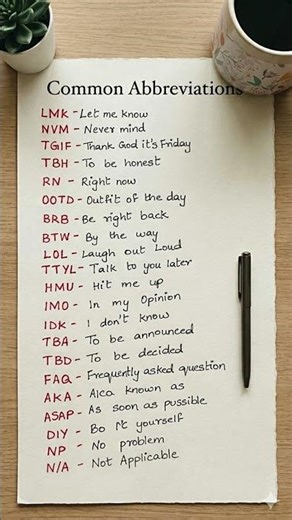 Common Abbreviations
LMK - Let me know
NVM - Never mind
TGIF - Thank God it's Friday
TBH - To be honest
RN - Right now
OOTD - Outfit of the day
BRB - Be right back
BTW - By the way
LOL - Laugh out Loud
TTYL - Talk to you later
HMU - Hit me up
IMO - In my Opinion
IDK - I don't know
TBA - To be announced
TBD - To be decided
FAQ - Frequently asked question
AKA - Alca known as
ASAP - As soon as pussible
DIY - Bo it yourself
NP - No problem
N/A - Not Applicable